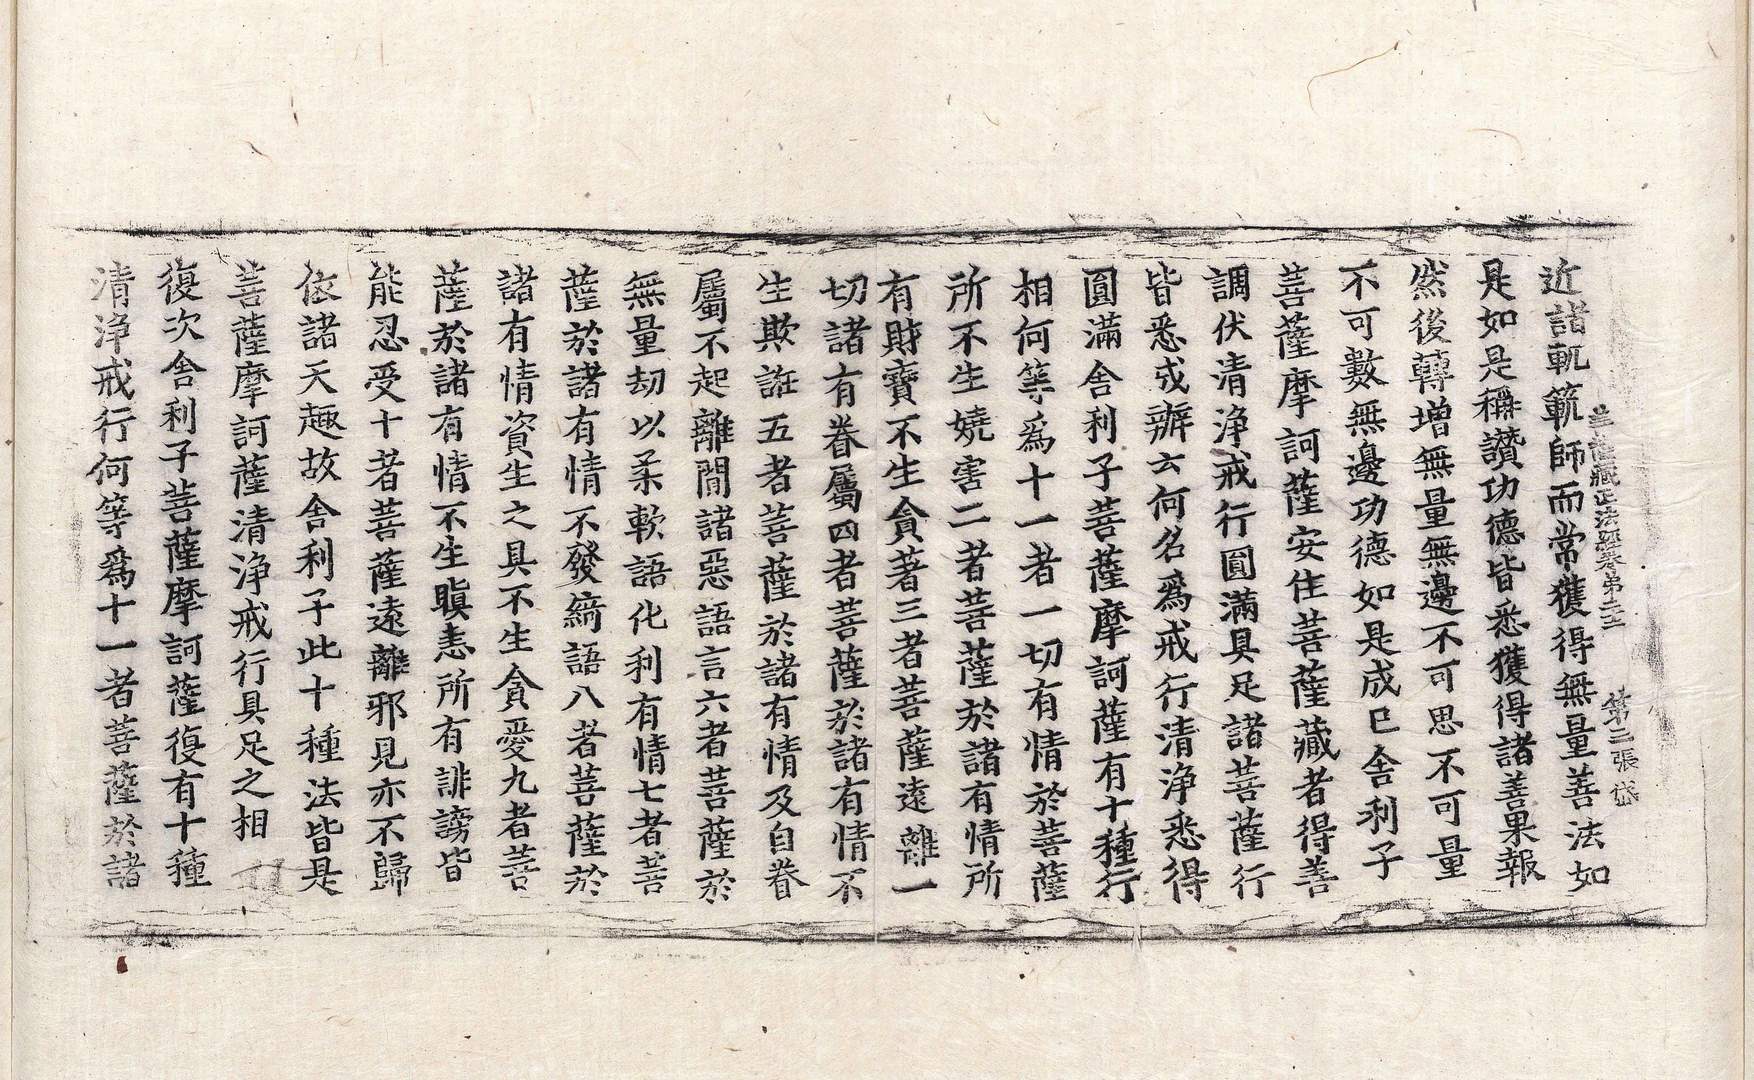 菩薩藏正法經卷第十三 第二張 岱
近諸軌範師而常獲得無量善法如
是如是稱讚功德皆悉獲得諸善果報
然後轉增無量無邊不可思不可量
不可數無邊功德如是成已舍利子
菩薩摩訶薩安住菩薩藏者得善
調伏清淨戒行圓滿具足諸菩薩行
皆悉成辦云何名爲戒行清淨悉得
圓滿舍利子菩薩摩訶薩有十種行
相何等爲十一者一切有情於菩薩
所不生嬈害二者菩薩於諸有情所
有財寶不生貪著三者菩薩遠離一
切諸有眷屬四者菩薩於諸有情不
生欺誑五者菩薩於諸有情及自眷
屬不起離間諸惡語言六者菩薩於
無量劫以柔軟語化利有情七者菩
薩於諸有情不發綺語八者菩薩於
諸有情資生之具不生貪愛九者菩
薩於諸有情不生瞋恚所有誹謗皆
能忍受十者菩薩遠離邪見亦不歸
依諸天趣故舍利子此十種法皆是
菩薩摩訶薩清淨戒行具足之相
復次舍利子菩薩摩訶薩復有十種
清淨戒行何等爲十一者菩薩於諸